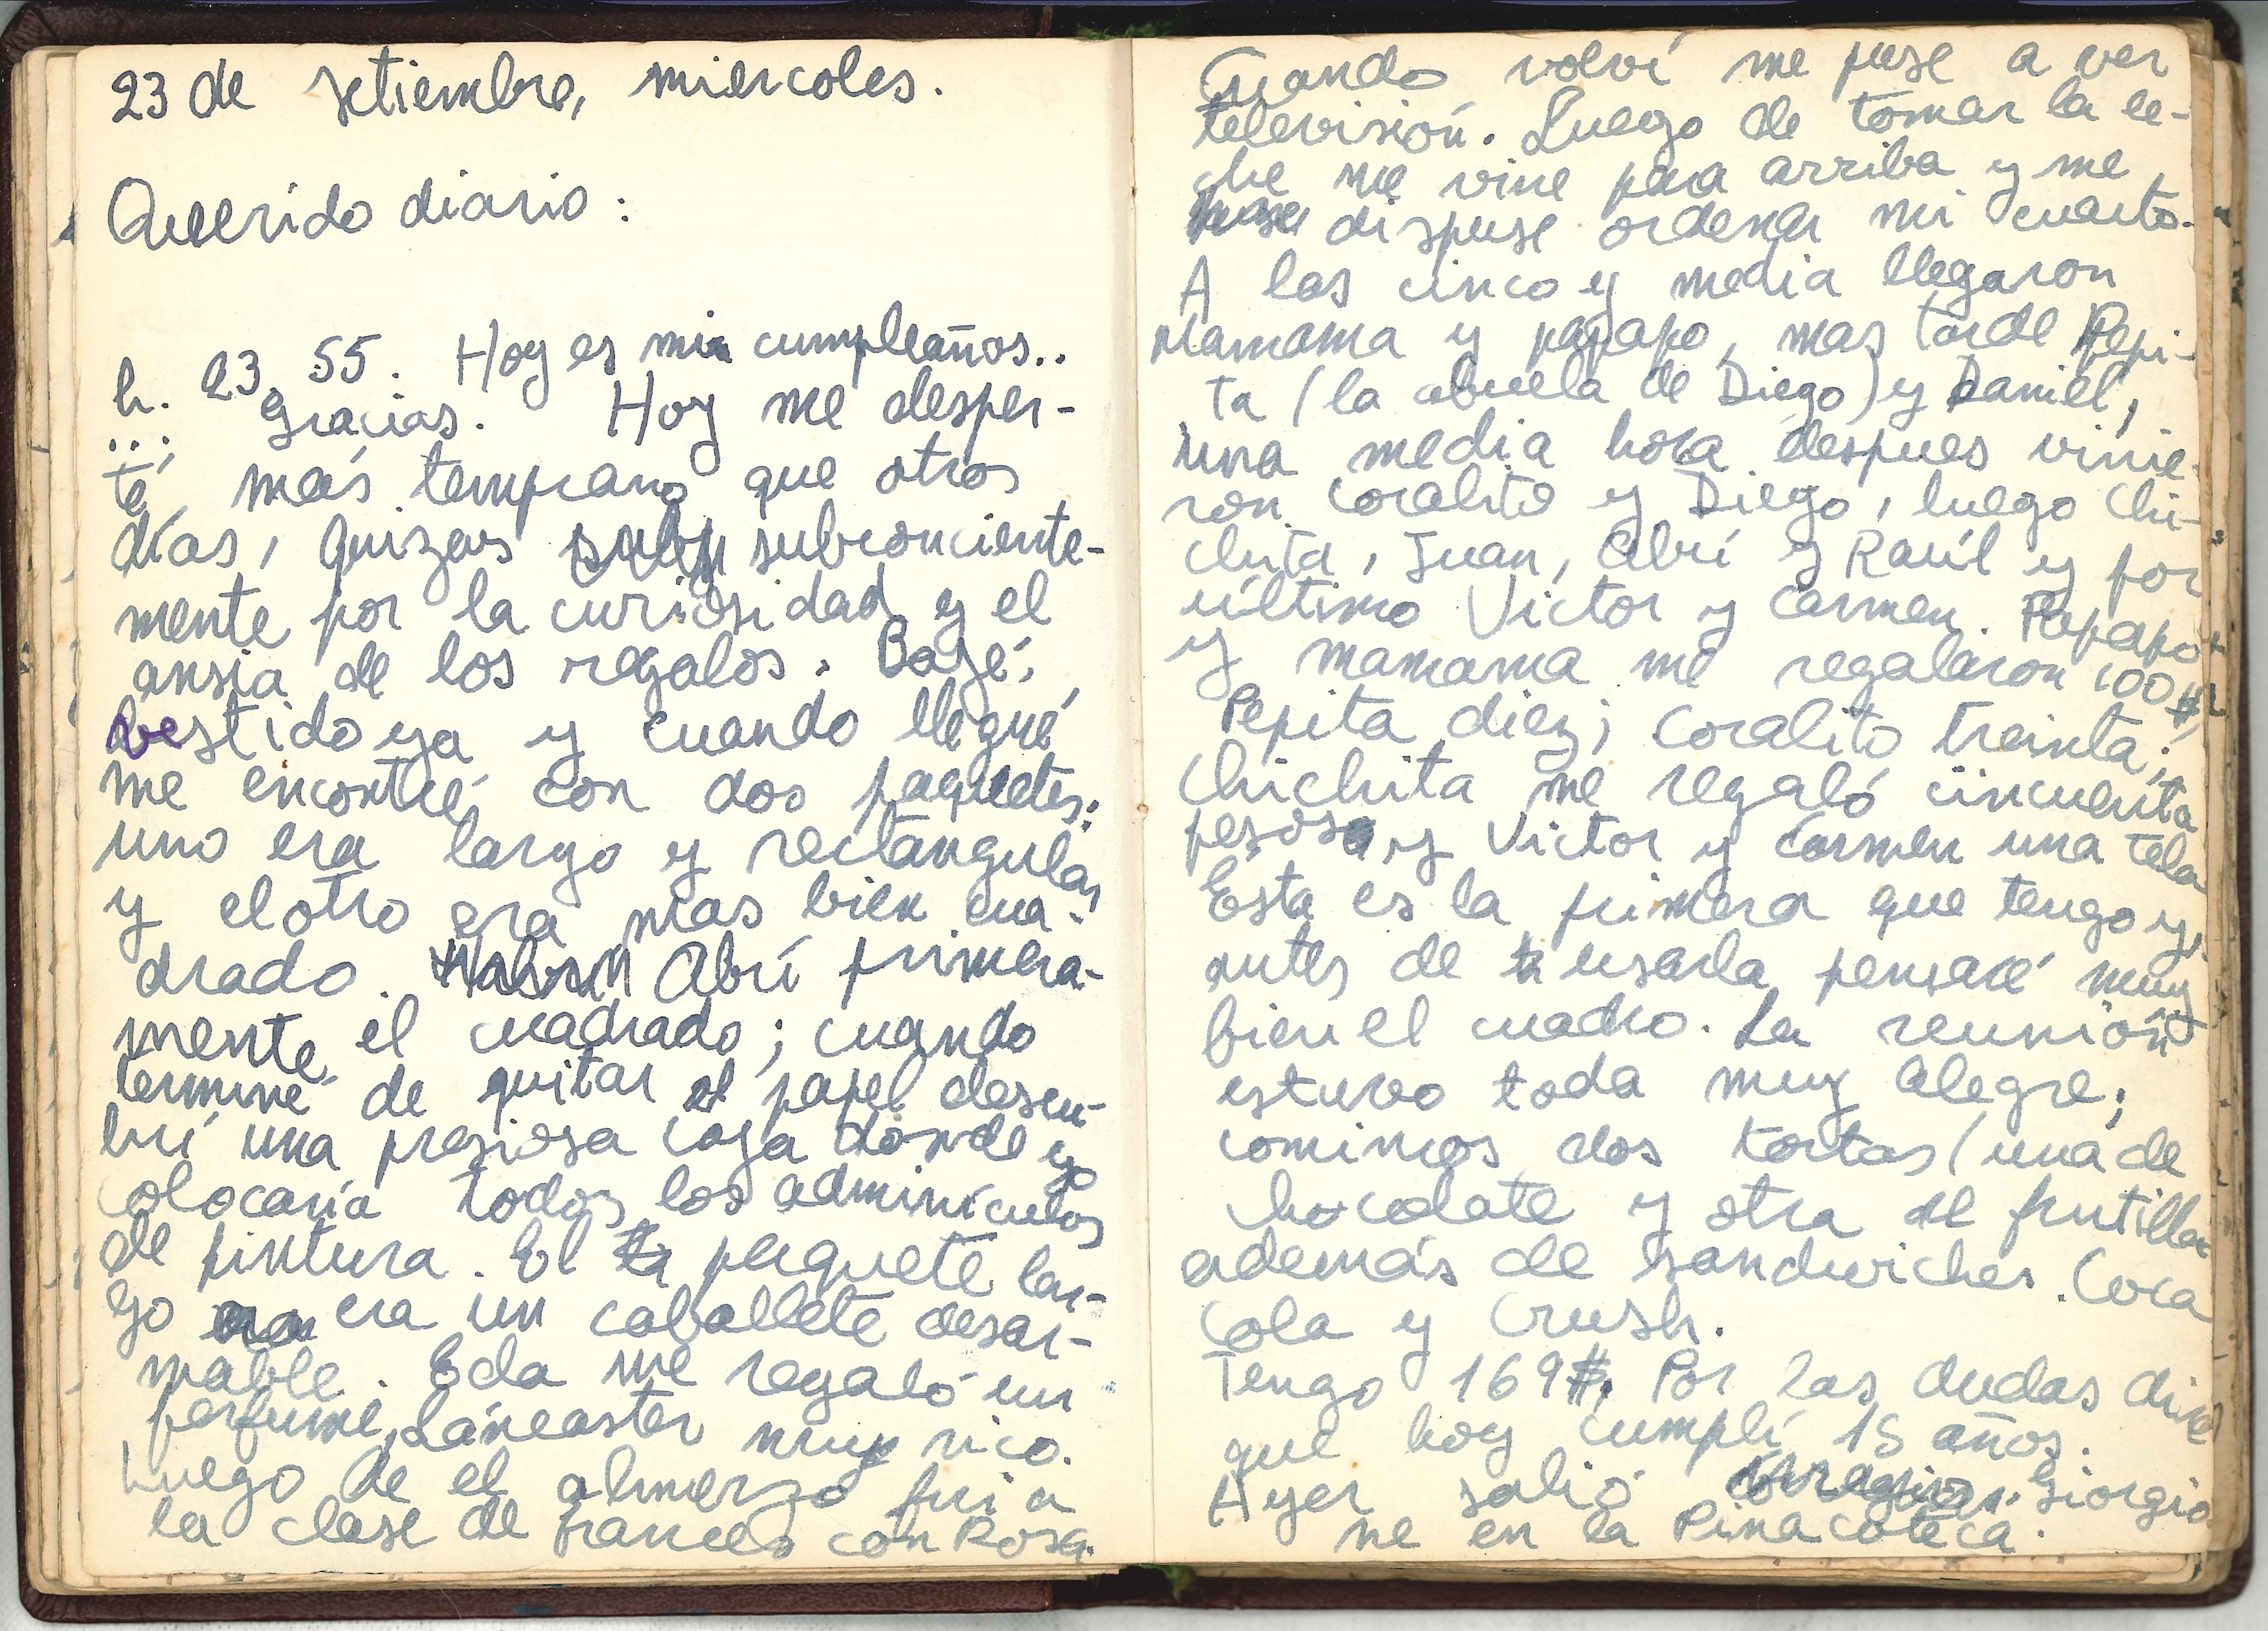 23 de setiembre, miercoles.
Querido diario:
h. 23, 55. Hoy es mi cumpleaños..
...; Gracias. Hoy me desper-
té, más temprano que otros
días, quizás subconciente-
mente por la curiosidad y el
ansia de los regalos. Bajé,
vestido ya y cuando llegué
me encontré con dos paquetes:
uno era largo y rectángular
y el otro era mas bien cua-
drado. Abrí primera-
mente el cuadrado; cuando
terminé de quitar el papel descu-
brí una presiosa caja dónde yo
colocaría todos los adminículos
de pintura. El paquete lar-
go era un caballete desar-
mable. Eda me regaló un
perfume, Láncaster muy rico.
Luego de el almerzo fui a
la clase de francés con Rosa.
Cuando volví me puse a ver
televisión. Luego de tomar la le-
che me vine para arriba y me
dispuse ordenar mi cuarto.
A las cinco y media llegaron
Mamama y papapo, mas tarde Pepi-
ta (la abuela de Diego) y Daniel,
una media hora despues vinie-
ron Coralito y Diego, luego Chi-
chita, Juan, Abrí y Raúl y por
último Victor y Carmen. Papapo
y mamama me regalaron 100 $,
Pepita diez; Coralito treinta;
Chichita me regaló cincuenta
pesos y Victor y Carmen una tela
Esta es la primera que tengo y,
antes de usarla pensaré muy
bien el cuadro. La reunión
estuvo toda muy alegre;
comimos dos tortas (una de
chocolate y otra de frutilla
además de sandwiches. Coca
Cola y Crush.
Tengo 169 $. Por las dudas diré
que hoy cumplí 15 años.
Ayer salió Giorgio
ne en la Pinacoteca.